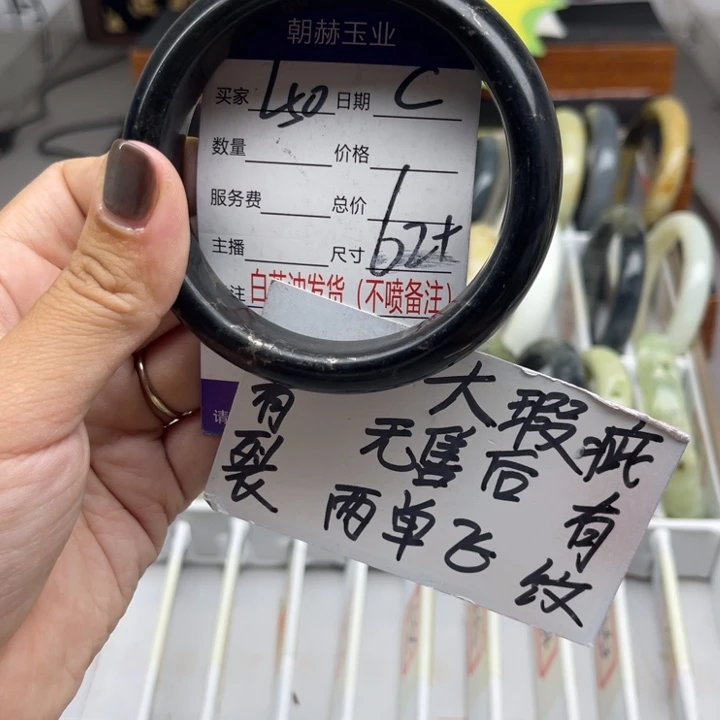 朝赫玉业
买家 L50 日期 C
数量 价格
服务费 总价
主播 尺寸 62+
注 白菜冲发货（不喷备注）
请
大瑕疵
有裂
无售后
有纹
两单飞